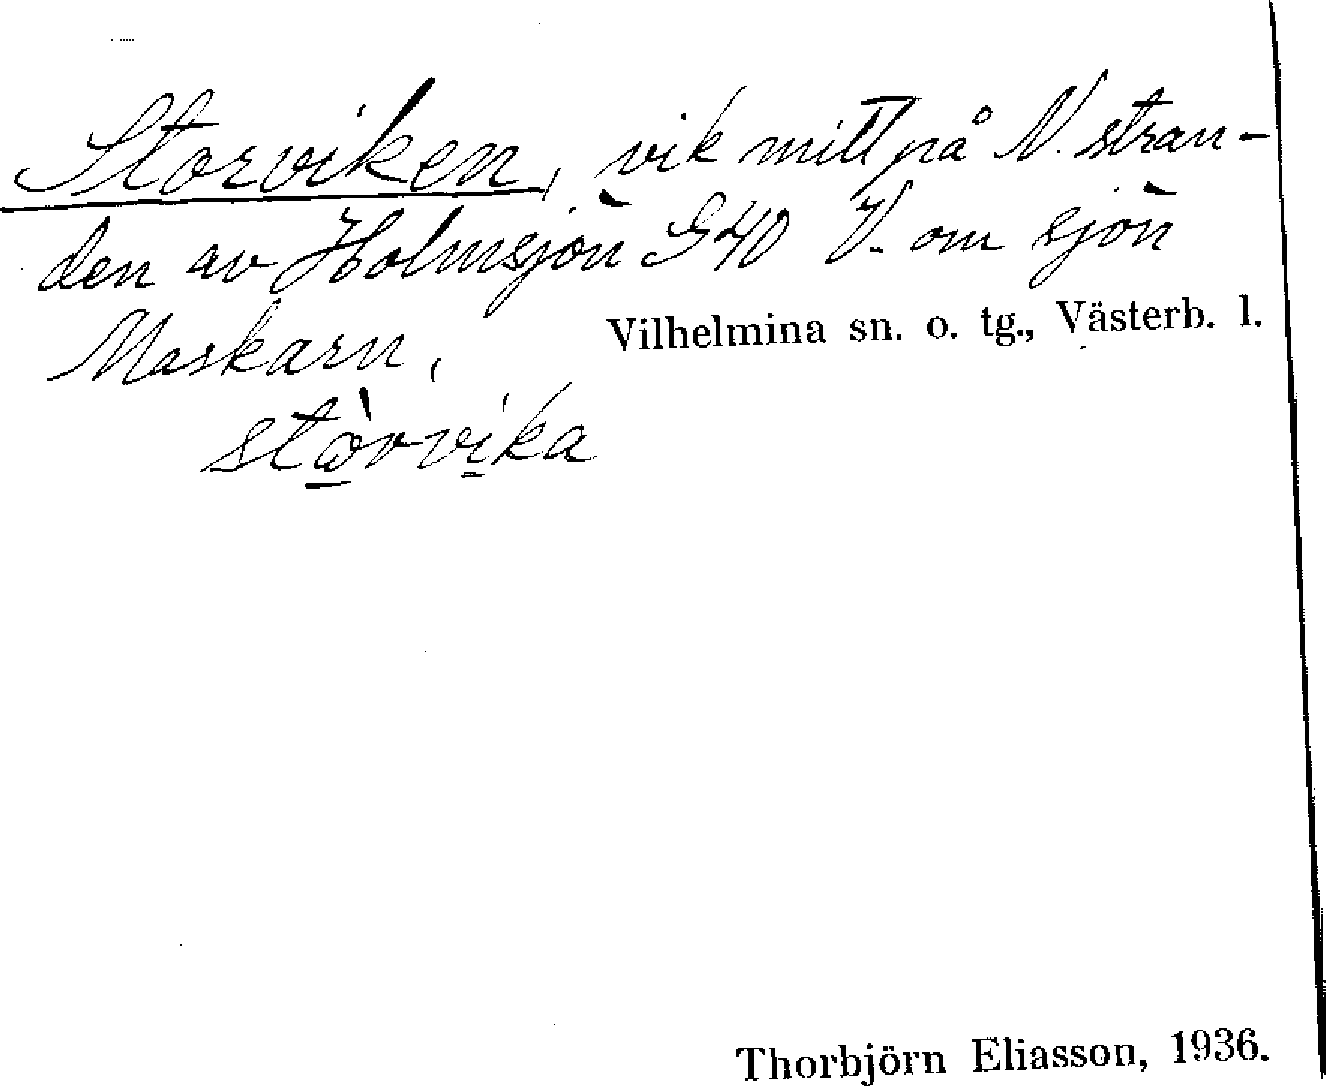 Storviken, vik mitt på N. stran-
den av Holmsjön G40 V. om sjön
Maskarn,
Vilhelmina sn. o. tg., Västerb. l.
stòrvika
Thorbjörn Eliasson, 1936.